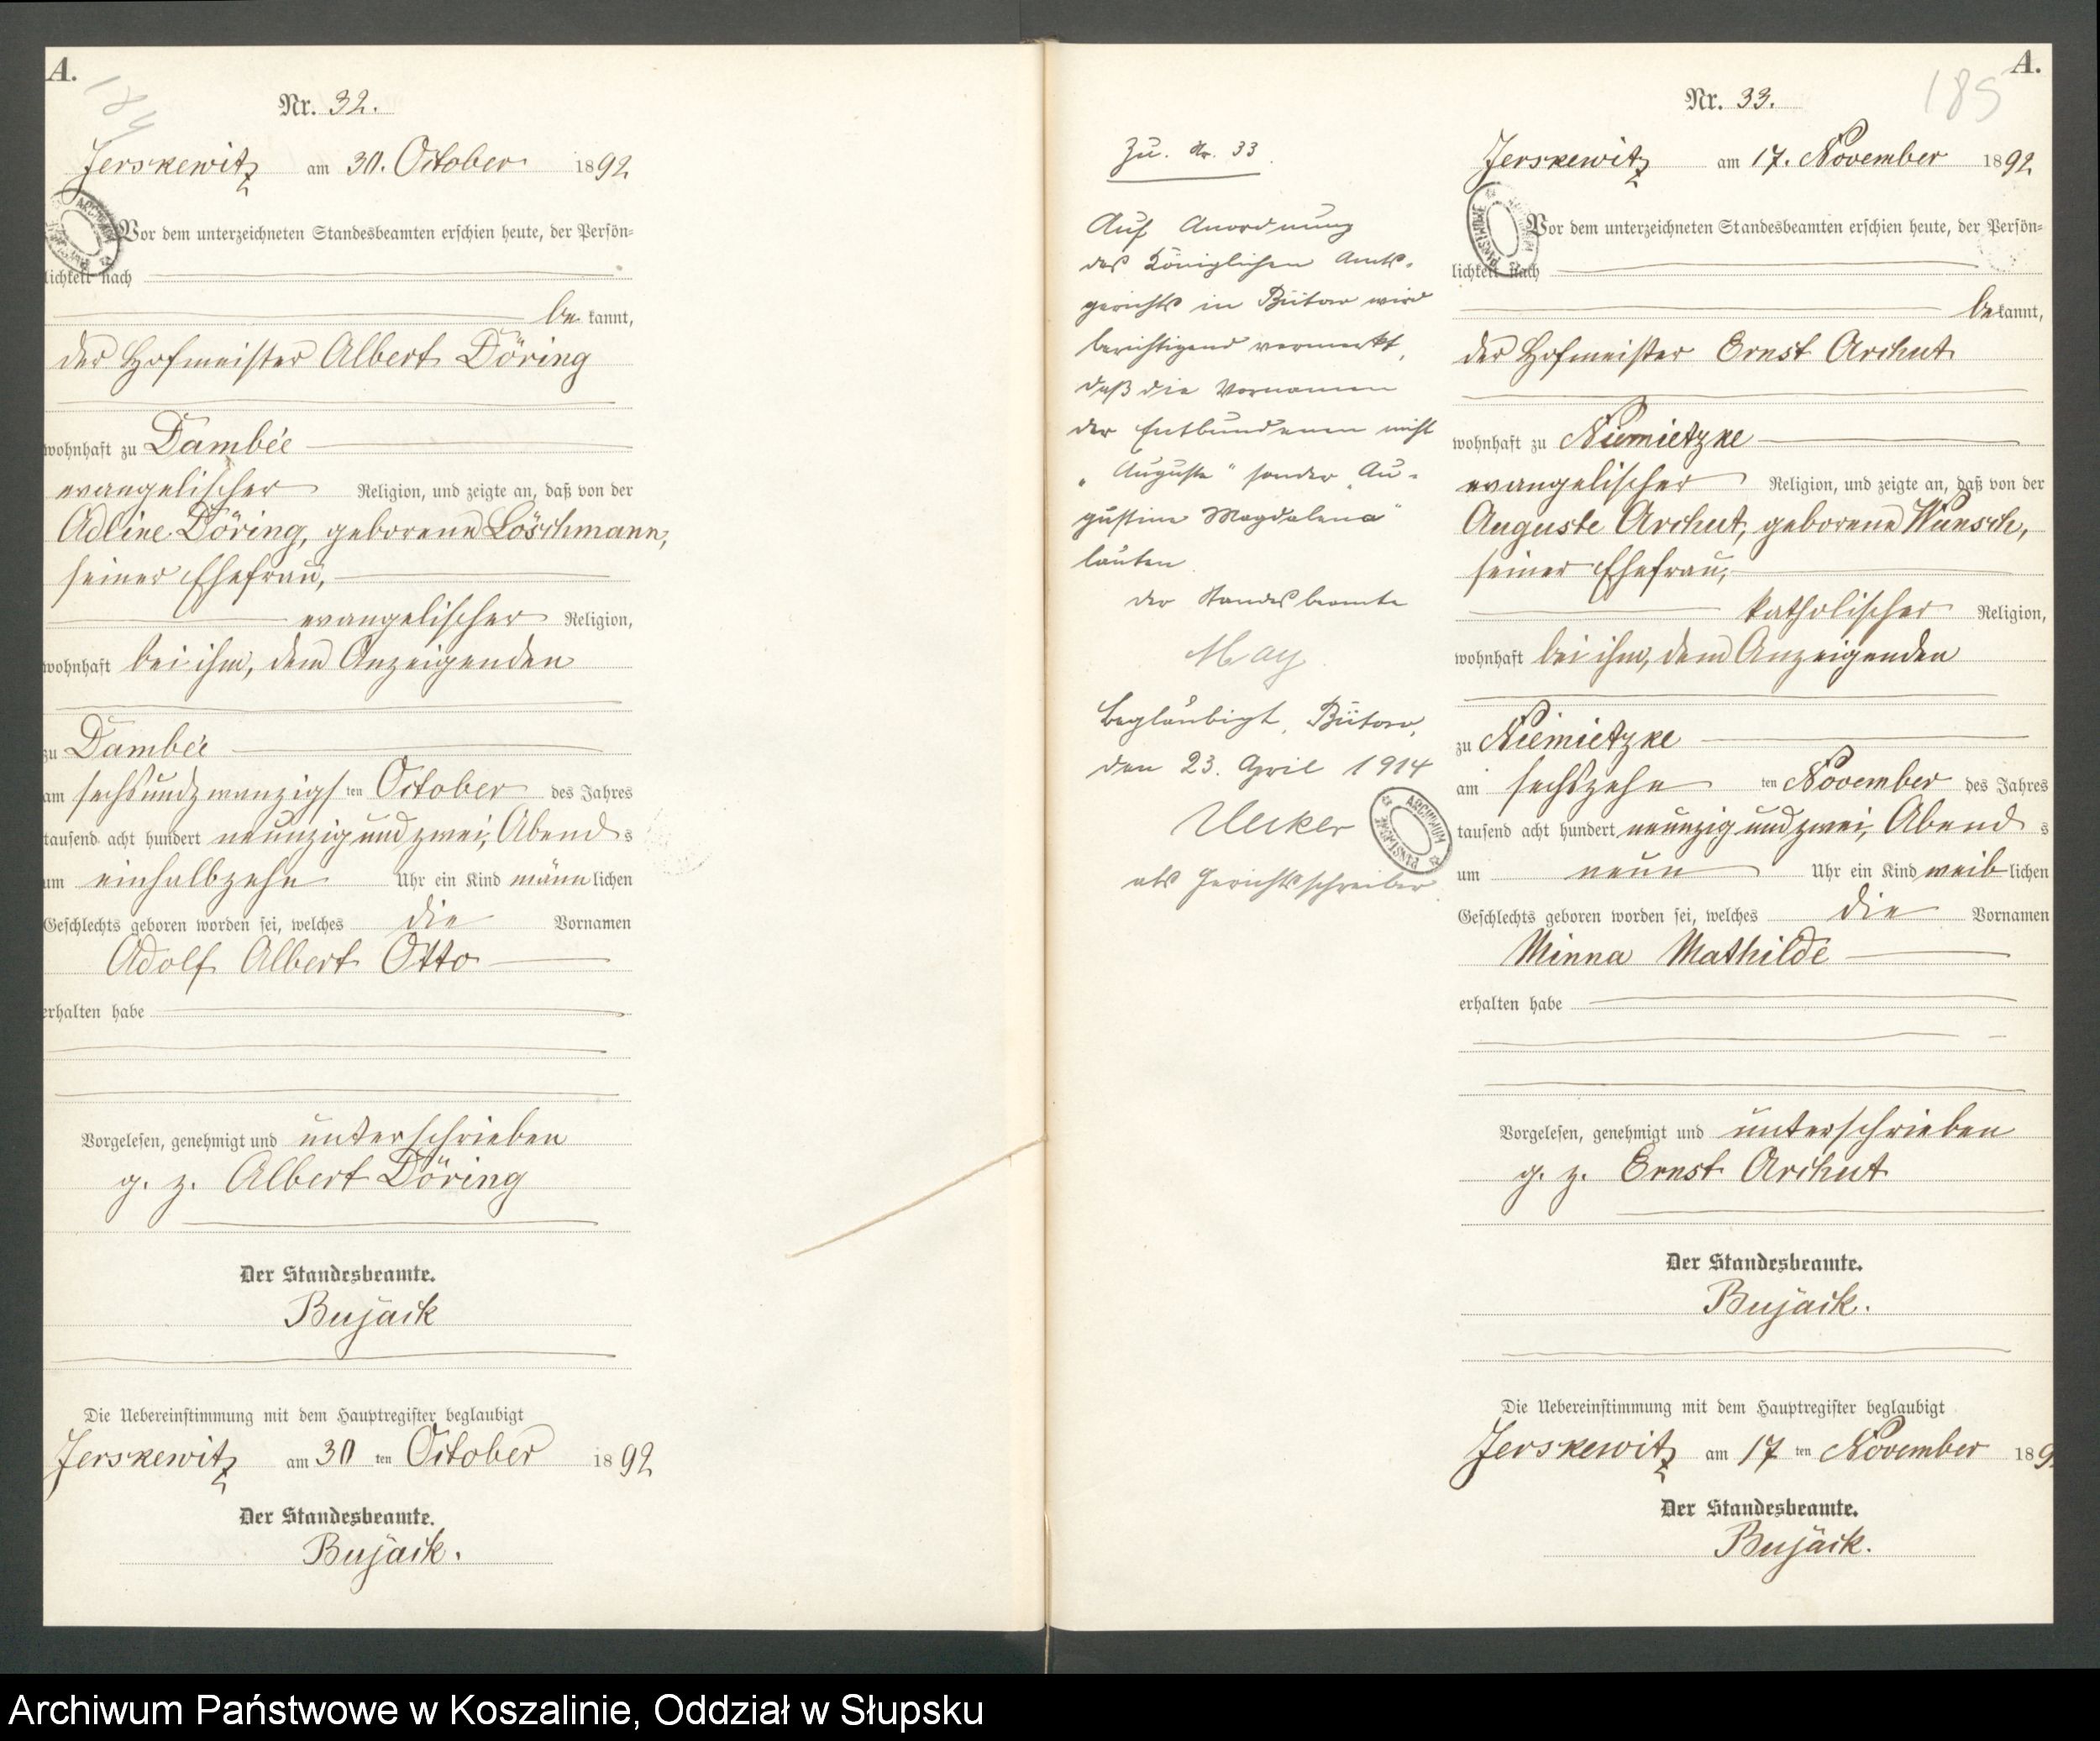 A.
184
Nr. 32.
Jerskewitz am 30. October 1892
Vor dem unterzeichneten Standesbeamten erschien heute, der Persön-
lichkeit nach
be kannt,
der Hofmeister Albert Döring
wohnhaft zu Dambée
evangelischer Religion, und zeigte an, daß von der
Adline Döring, geborene Löschmann,
seiner Ehefrau,
evangelischer Religion,
wohnhaft bei ihm, dem Anzeigenden
zu Dambée
am sechsundzwanzigsten October des Jahres
tausend acht hundert neunzig und zwei, Abends
um einhalbzehn Uhr ein Kind männlichen
Geschlechts geboren worden sei, welches die Vornamen
Adolf Albert Otto
erhalten habe
Vorgelesen, genehmigt und unterschrieben
g. z. Albert Döring
Der Standesbeamte.
Bujack
Die Uebereinstimmung mit dem Hauptregister beglaubigt
Jerskewitz am 30 ten October 1892
Der Standesbeamte.
Bujack.
Zu. Nr. 33
Auf Anordnung
des Königlichen Amts-
gerichts in Bütow wird
berichtigend vermerkt,
daß die Vornamen
der Entbundenen nicht
"Auguste" sonder "Au-
gustine Magdalena"
lauten
der Standesbeamte
May
Beglaubigt, Bütow,
den 23. April 1914
Uecker
als Gerichtsschreiber
A.
185
Nr. 33.
Jerskewitz am 17. November 1892
Vor dem unterzeichneten Standesbeamten erschien heute, der Persön-
lichkeit nach
bekannt,
der Hofmeister Ernst Archut
wohnhaft zu Niemietzke
evangelischer Religion, und zeigte an, daß von der
Auguste Archut, geborene Wunsch,
seiner Ehefrau,
katholischer Religion,
wohnhaft bei ihm, dem Anzeigenden
zu Niemietzke
am sechszehn ten November des Jahres
tausend acht hundert neunzig und zwei, Abends
um neun Uhr ein Kind weiblichen
Geschlechts geboren worden sei, welches die Vornamen
Minna Mathilde
erhalten habe
Vorgelesen, genehmigt und unterschrieben
g. z. Ernst Archut
Der Standesbeamte.
Bujack.
Die Uebereinstimmung mit dem Hauptregister beglaubigt
Jerskewitz am 17 ten November 189
Der Standesbeamte.
Bujack.
Archiwum Państwowe w Koszalinie, Oddział w Słupsku